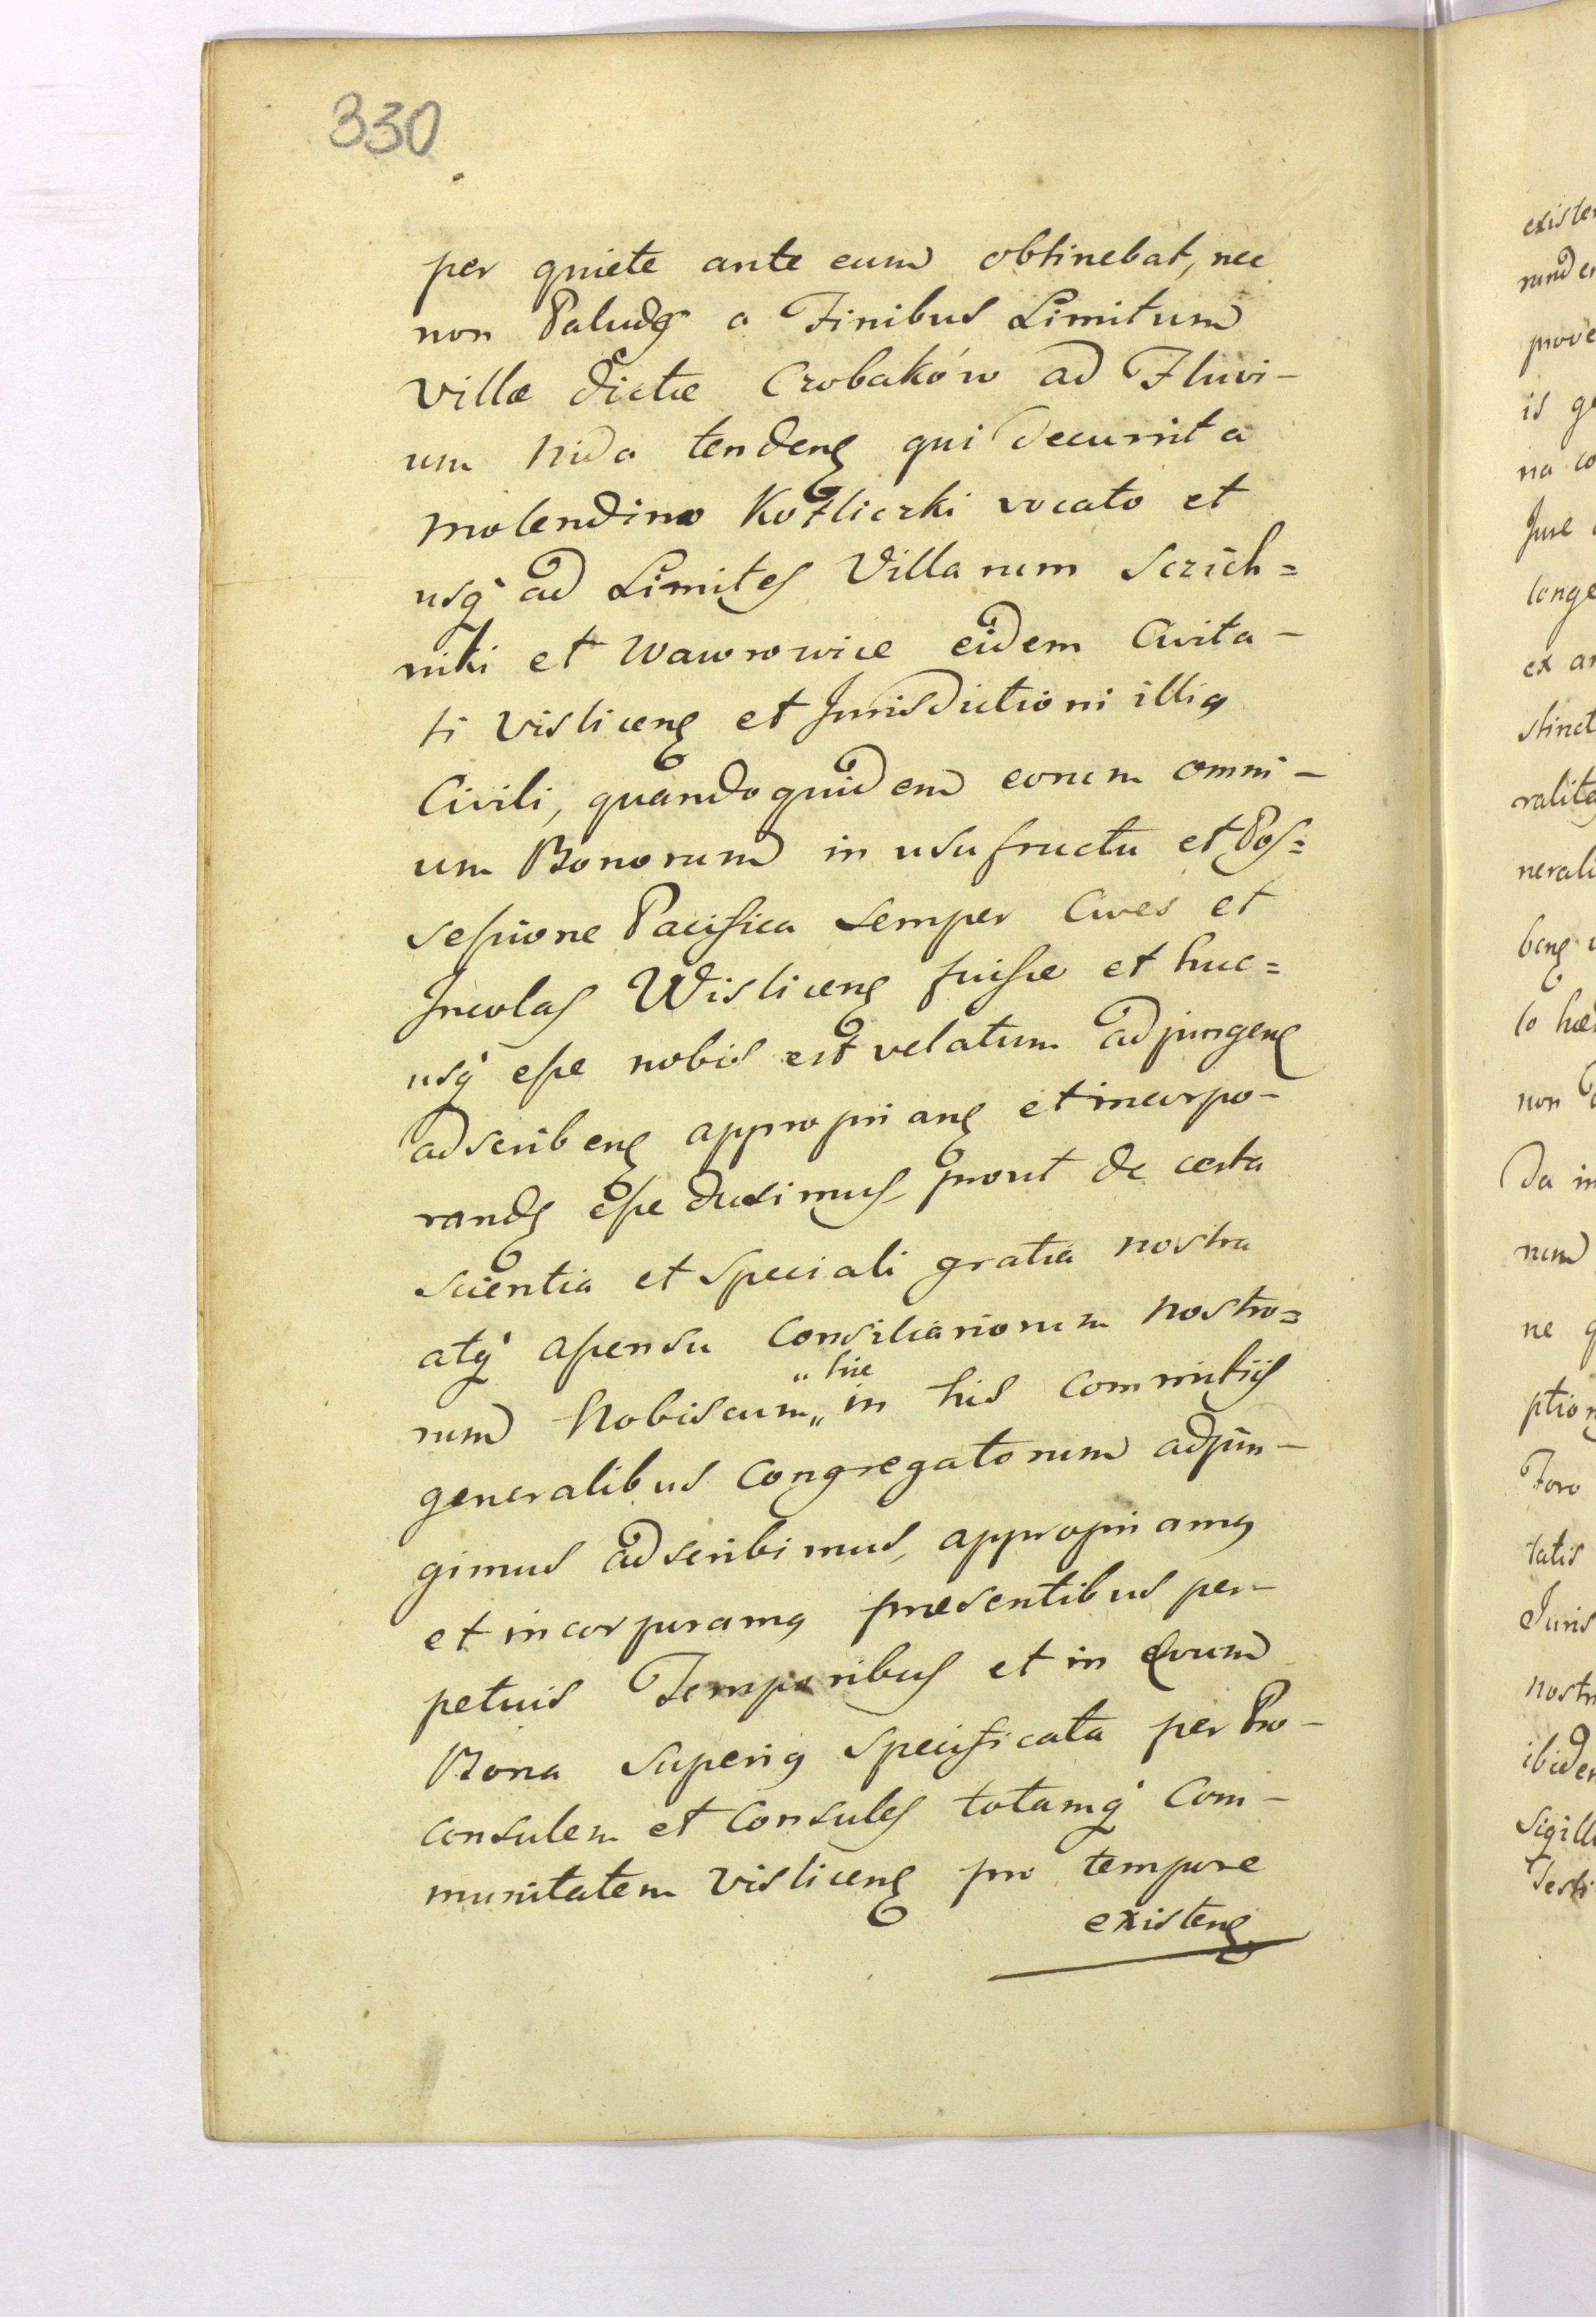 330
per quiete ante eum obtinebat, nec
non Paludꝫ a Finibus Limitum
Villæ dictæ Crobaków ad Fluvi-
um Nida tendenꝫ qui decurrit a
molendino Kotliczki vocato et
usq' ad Limites Villarum Sczich=
niki et Wawrowice eidem Civita-
ti Visliceng et Jurisdictioni illiꝯ
Civili, quandoquidem eorum omni-
um Bonorum in usufructu et Pos=
sessione Pacifica semper Cives et
Incolas Wisliceng fuisse et huc=
usq' esse nobis est relatum adjungenꝫ
adscribenꝫ appropriang et incorpo-
randꝫ esse duximus prout de certa
scientia et speciali gratia nostra
atq' assensu Consiliariorum nostro=
" hic
rum Nobiscum " in his Commitijs
generalibus Congregatorum adjun-
gimus adscribimus, appropriamꝯ
et incorporamꝯ præsentibus per-
petuis Temporibus et in Ævum
Bona superiꝯ specificata per Pro-
consulem et Consules totamq' Com-
munitatem Vislicenꝫ pro tempore
existenꝫ
existen
rund
prove
is
na co
Jure
longe
ex an
stinct
ralite
nerali
beng
to hæ
non
Da in
rum
ne
ption
Foro
tatis
Juris
nostr
ibidem
Sigill
Testi